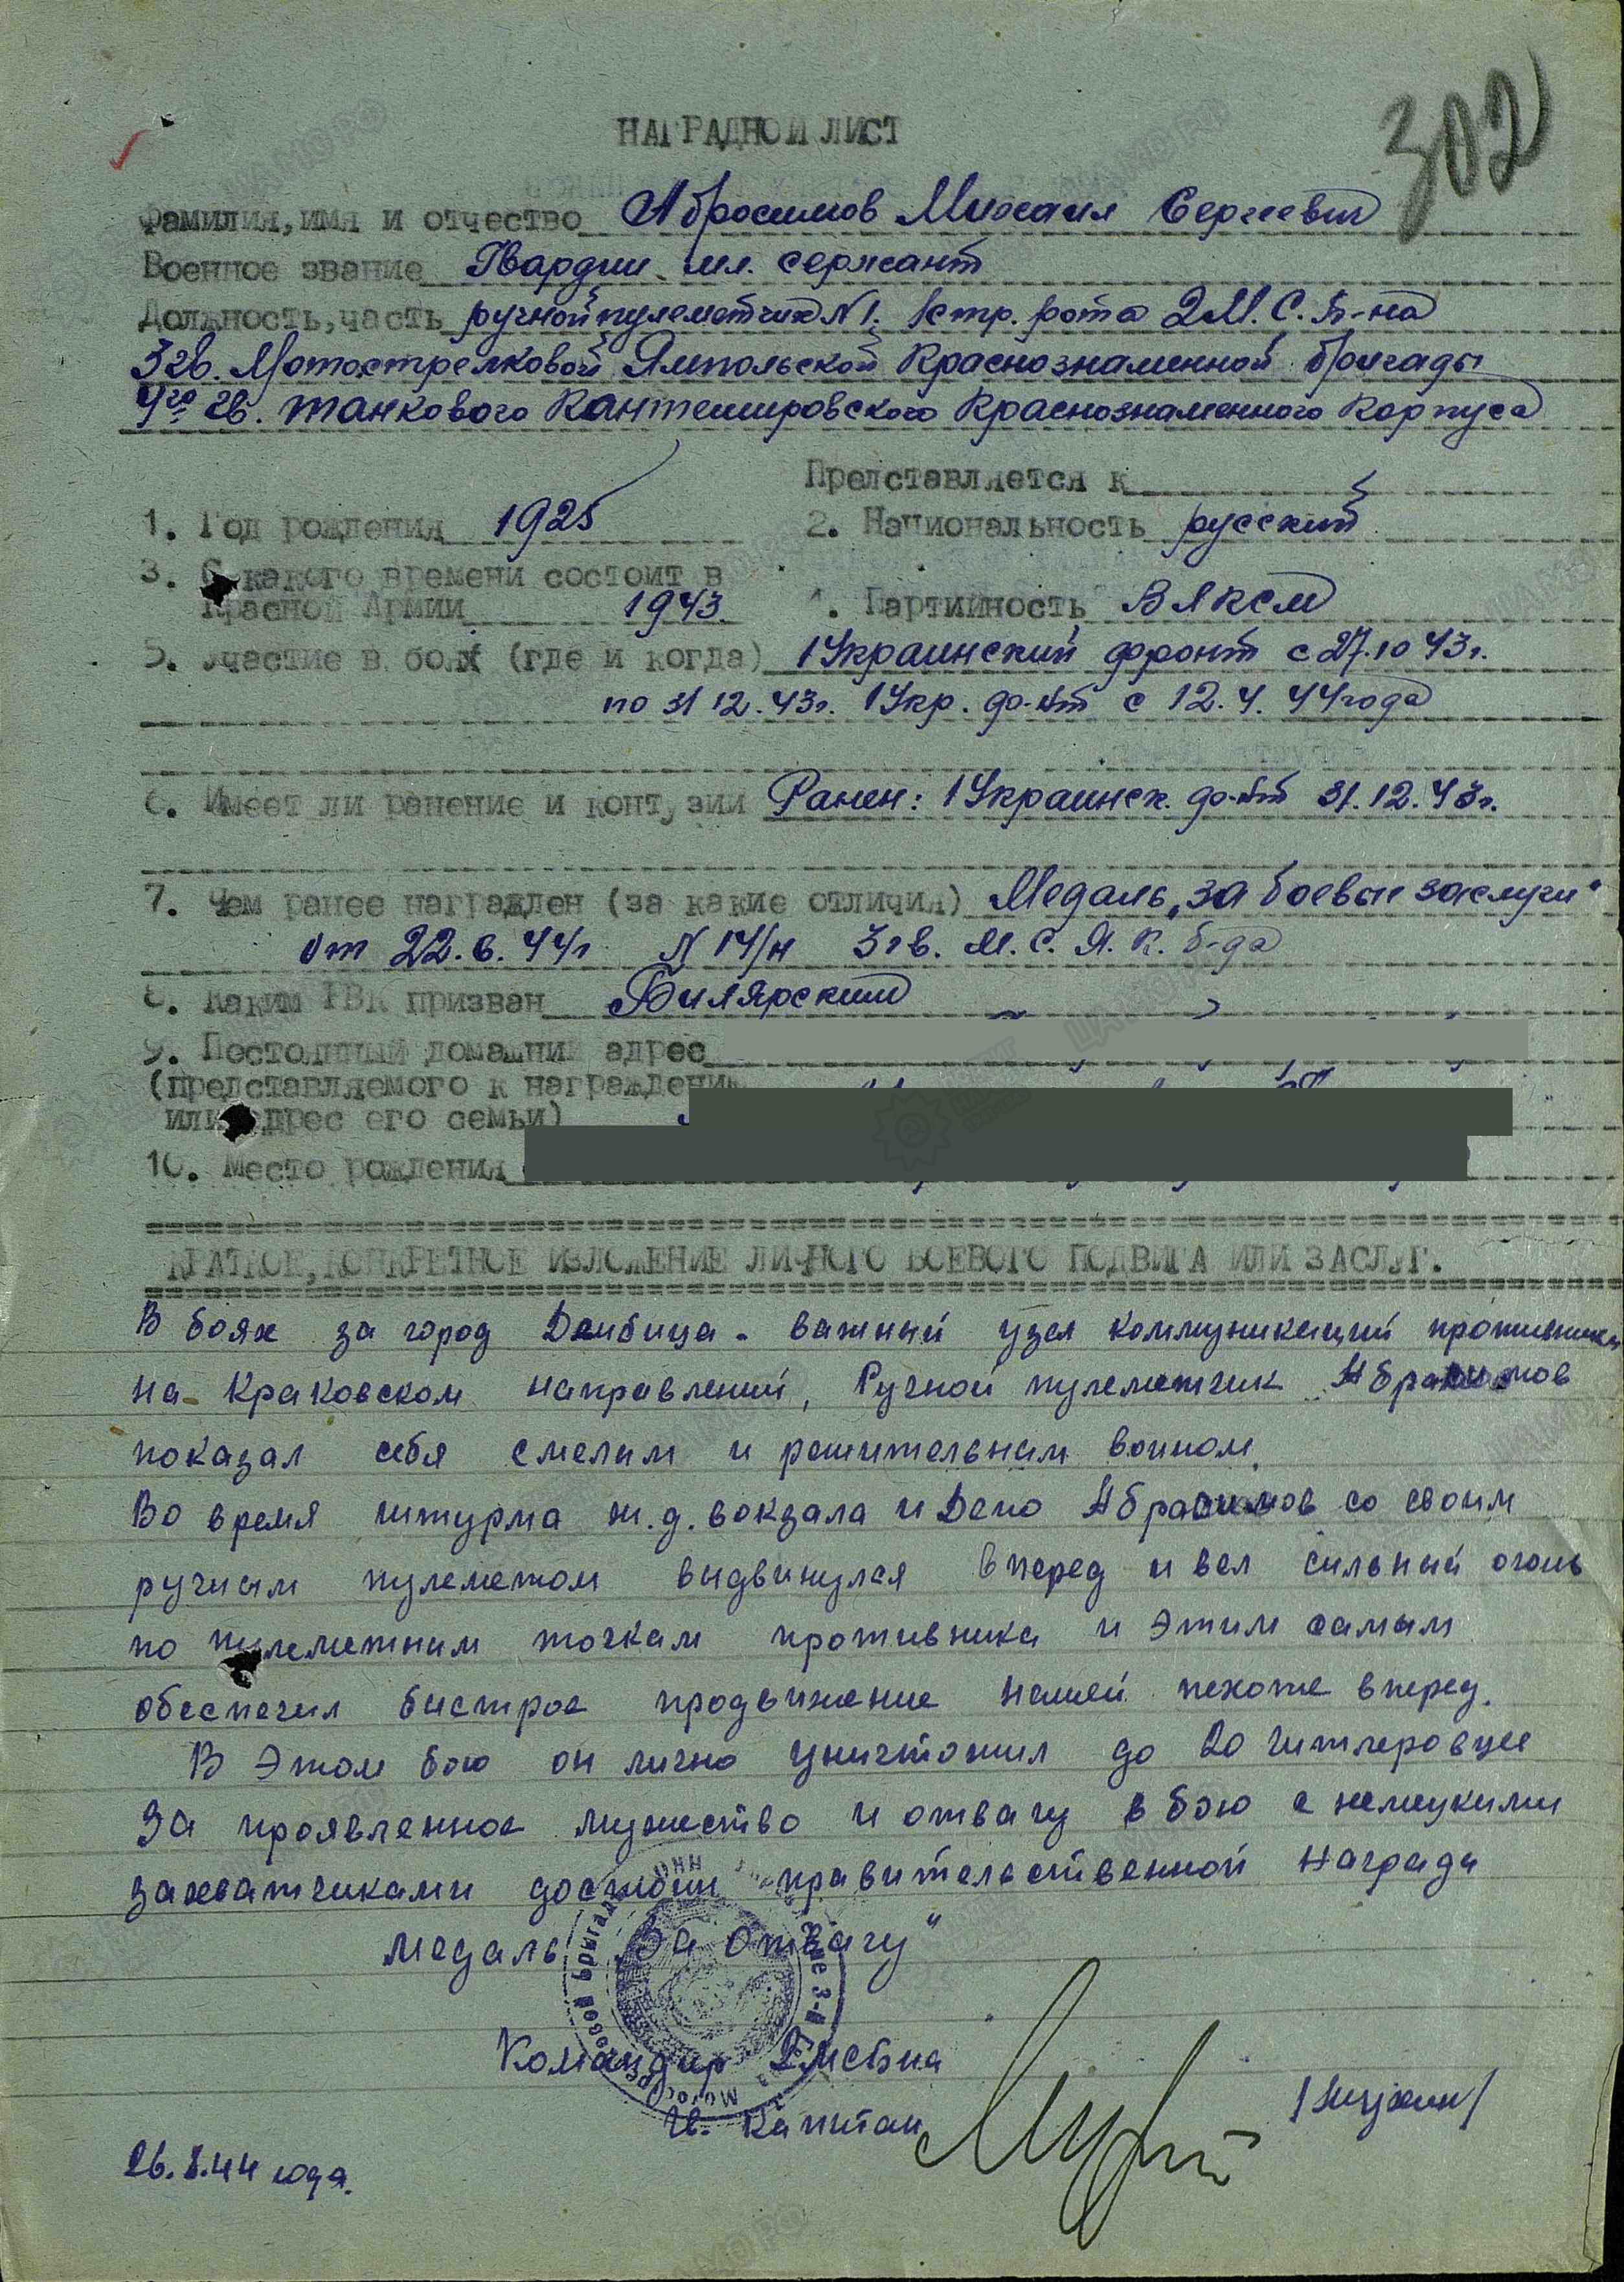 302
НАГРАДНОЙ ЛИСТ
Фамилия, имя и отчество Абросимов Михаил Сергеевич
Военное звание Гвардии мл. сержант
Должность, часть ручной пулеметчик №1. стр. рота 2 М.С.Б-на
3 гв. Мотострелковой Ямпольской Краснознаменной бригады
4го гв. танкового Кантемировского Краснознаменного Корпуса
Представляется к
1. Год рождения 1925
2. Национальность русский
3. С какого времени состоит в
Красной Армии 1943
4. Партийность ВЛКСМ
5. Участие в боях (где и когда) 1 Украинский фронт с 27.10 43г.
по 31 12.43г. 1 Укр. фр-нт с 12.4.44 года
6. Имеет ли ранение и контузии Ранен: 1 Украинск. фр-нт 31.12.43г.
7. Чем ранее награжден (за какие отличия) Медаль „за боевые заслуги"
от 22.6.44г N 14/н 3 гв. М.С.Я.К. б-да
8. Каким РВК призван Билярский
9. Постоянный домашний адрес
(представляемого к награждению
или адрес его семьи)
10. Место рождения
КРАТКОЕ, КОНКРЕТНОЕ ИЗЛОЖЕНИЕ ЛИЧНОГО БОЕВОГО ПОДВИГА ИЛИ ЗАСЛУГ.
В боях за город Дембица - важный узел коммуникаций противника
на Краковском направлений, Ручной пулеметчик Абрасимов
показал себя смелым и решительным воином.
Во время штурма ж.д. вокзала и Депо Абрасимов со своим
ручным пулеметом выдвинулся вперед и вел сильный огонь
по пулеметным точкам противника и этим самым
обеспечил быстрое продвижение нашей пехоте вперед.
В этом бою он лично уничтожил до 20 гитлеровцев
За проявленное мужество и отвагу в бою с немецкими
захватчиками достоин правительственной награды
медаль „За отвагу"
Командир 2 МСБна
Гв. Капитан
26.8.44 года.